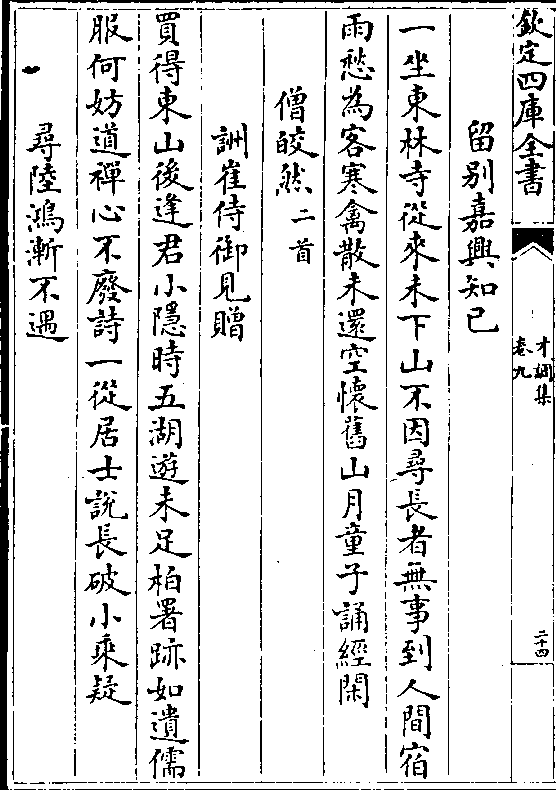 欽定四庫全書
才調集
卷九
二十四
留別嘉興知己
一坐東林寺從來未下山不因尋長者無事到人間宿
雨愁為客寒禽散未還空懷舊山月童子誦經閑
僧皎然二首
詶崔侍御見贈
買得東山後逢君小隱時五湖遊未足柏署跡如遺儒
服何妨道禪心不廢詩一從居士說長破小乘疑
尋陸鴻漸不遇